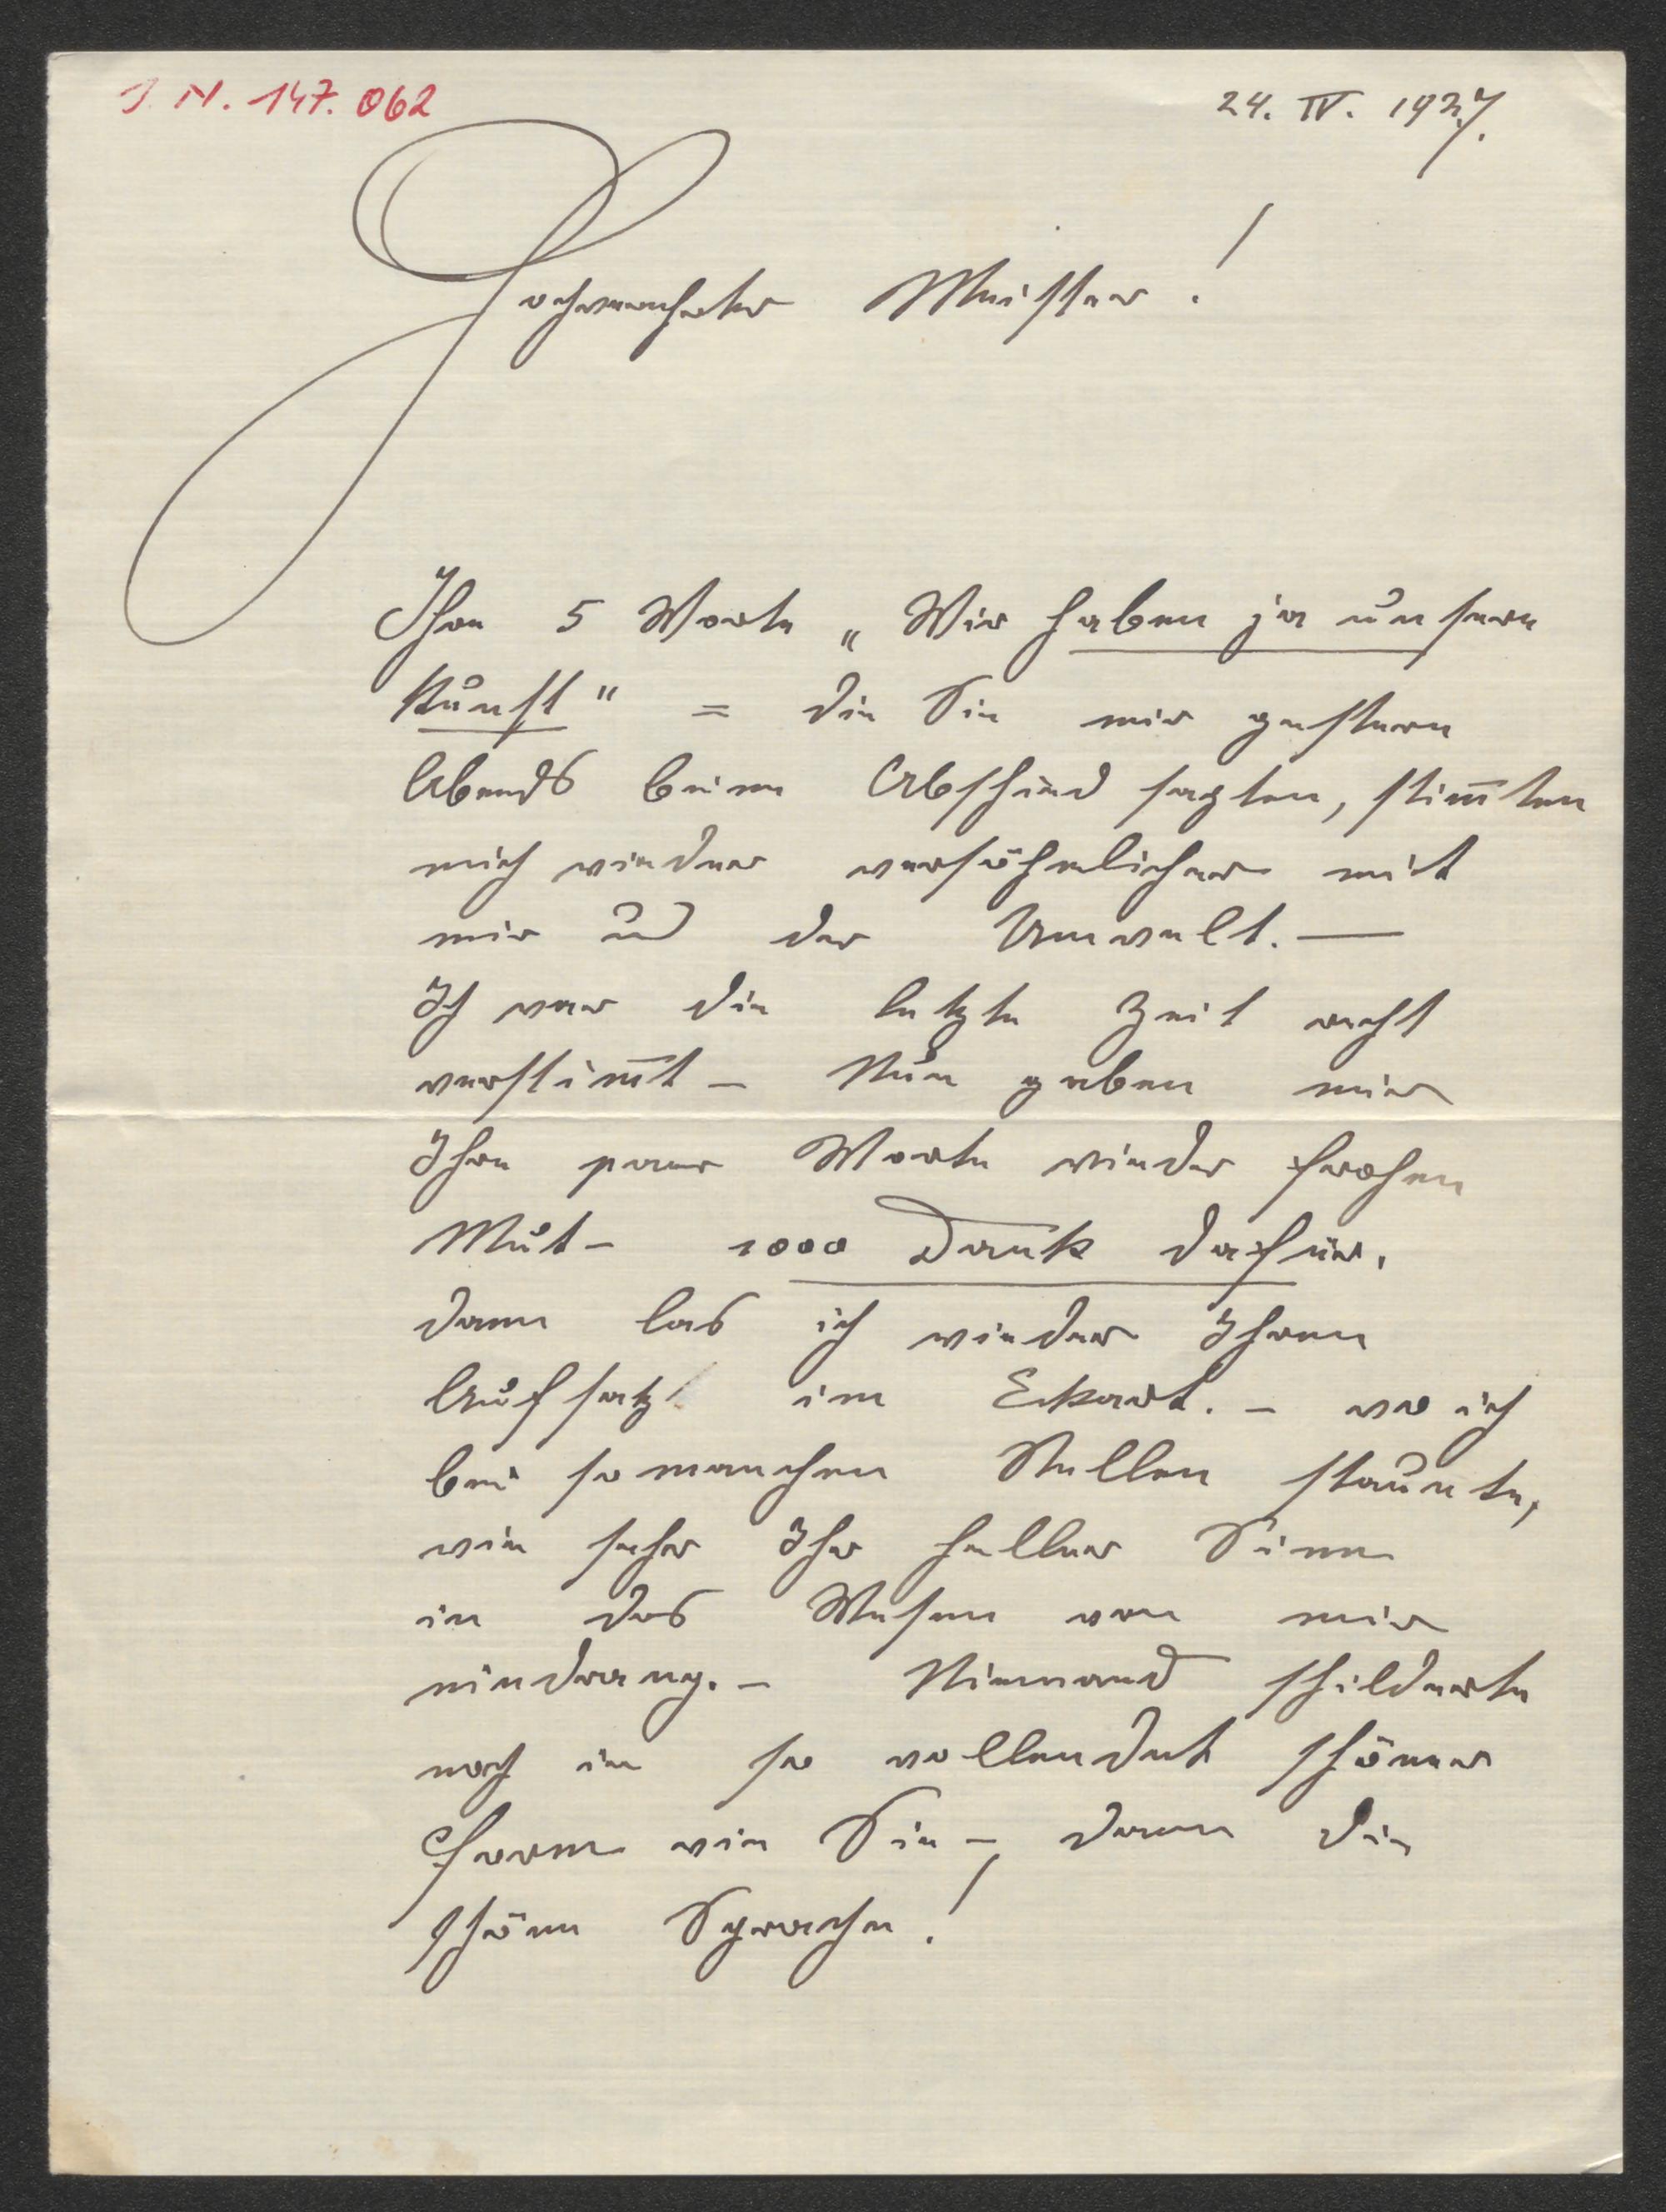 I. N. 147.062
24. IV. 1927.
Hochverehrter Meister!
Ihre 5 Worte „Wir haben ja unsere
Kunst" = die Sie mir gestern
Abends beim Abschied sagten, stim̅ten
mich wieder versöhnlicher mit
mir und der Umwelt. —
Ich war die letzte Zeit recht
verstim̅t – Nun gaben mir
Ihre paar Worte wieder frohen
Mut – 1000 Dank dafür.
Dann las ich wieder Ihren
Aufsatz im Eckart. – wo ich
bei so manchen Stellen staunte,
wie sehr Ihr heller Sinn
in das Wesen von mir
eindrang. – Niemand schilderte
noch in so vollendet schöner
Form wie Sie – dann die
schöne Sprache!